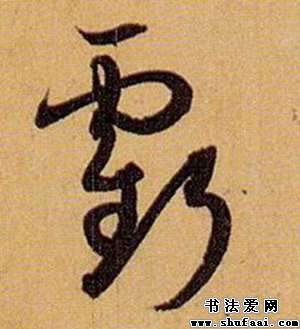 虧
书法爱网
www.shufaai.com